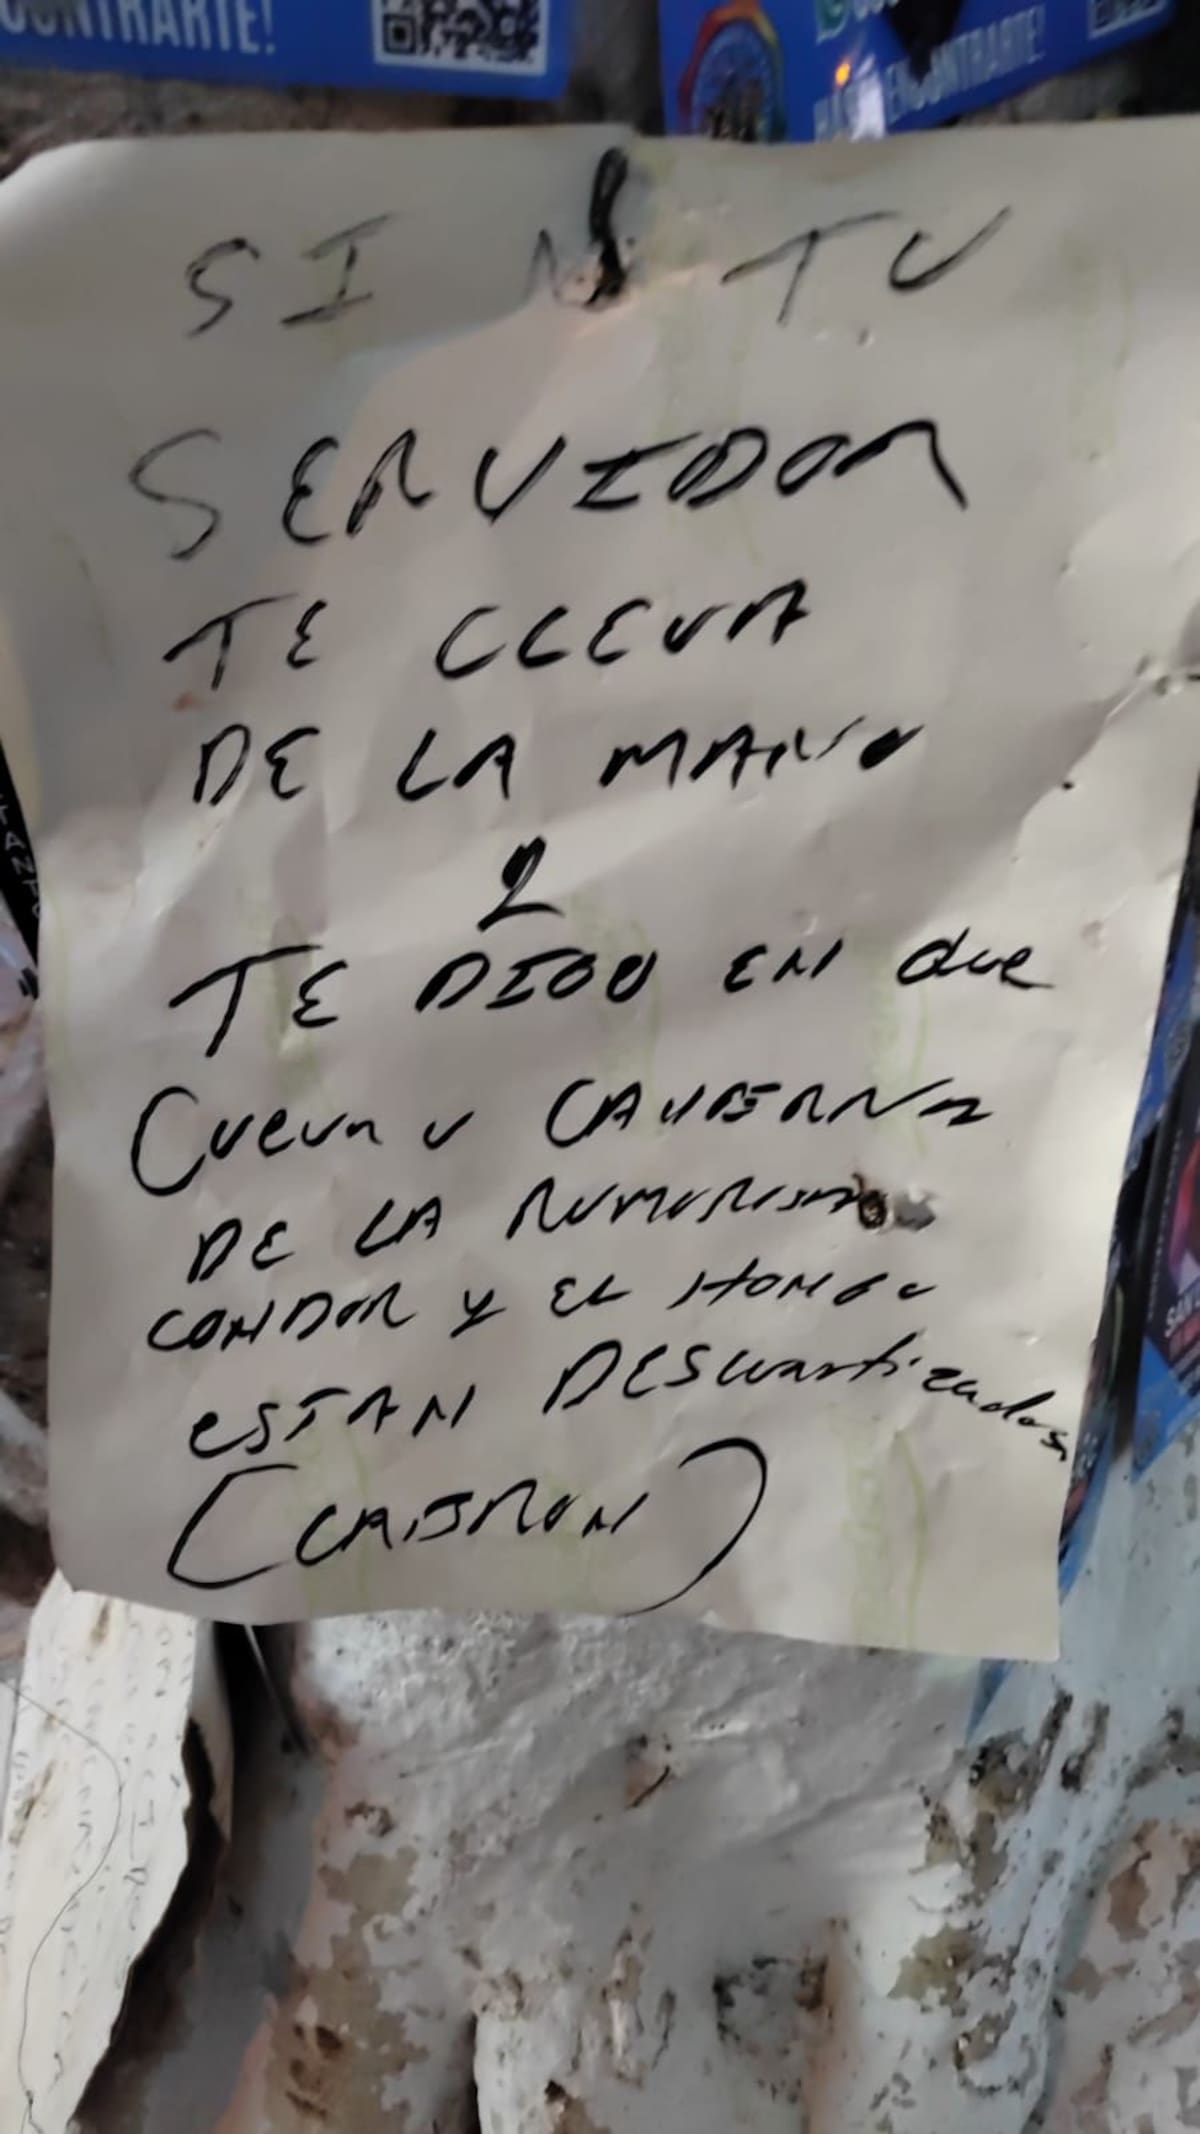 CONTRARTE!
ENCONTRARTE!
SI N TU
SERVIDOR
TE LLEVA
DE LA MANO
2
TE DIGO EN que
Cueva o CAVERNA
DE LA RUMOROSA
CONDOR Y EL HONGO
ESTAN DESCuartizados
(CABRON)